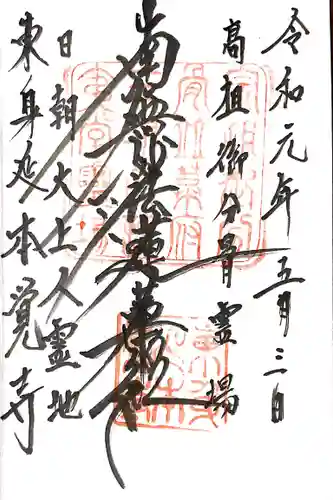 令和元年五月三日
高祖御分骨霊場
南無妙法蓮華経
日朝大上人霊地
東身延本覚寺